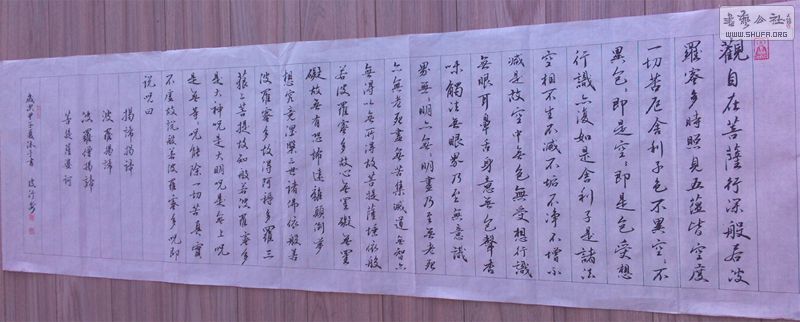 書藝公社
WWW.SHUFA.ORG
觀自在菩薩行深般若波
羅蜜多時照見五蘊皆空度
一切苦厄舍利子色不異空々不
異色々即是空々即是色受想
行識亦復如是舍利子是諸法
空相不生不滅不垢不淨不增不
減是故空中無色無受想行識
無眼耳鼻舌身意無色聲香
味觸法無眼界乃至無意識
界無々明亦無々明盡乃至無老死
亦無老死盡無苦集滅道無智亦
無得以無所得故菩提薩埵依般
若波羅蜜多故心無罣礙無罣
礙故無有恐怖遠離顛倒夢
想究竟涅槃三世諸佛依般若
波羅蜜多故得阿耨多羅三
藐三菩提故知般若波羅蜜多
是大神咒是大明咒是無上咒
是無等々咒能除一切苦真實
不虛故說般若波羅蜜多咒即
說咒曰
揭諦揭諦
波羅揭諦
波羅僧揭諦
菩提薩婆訶